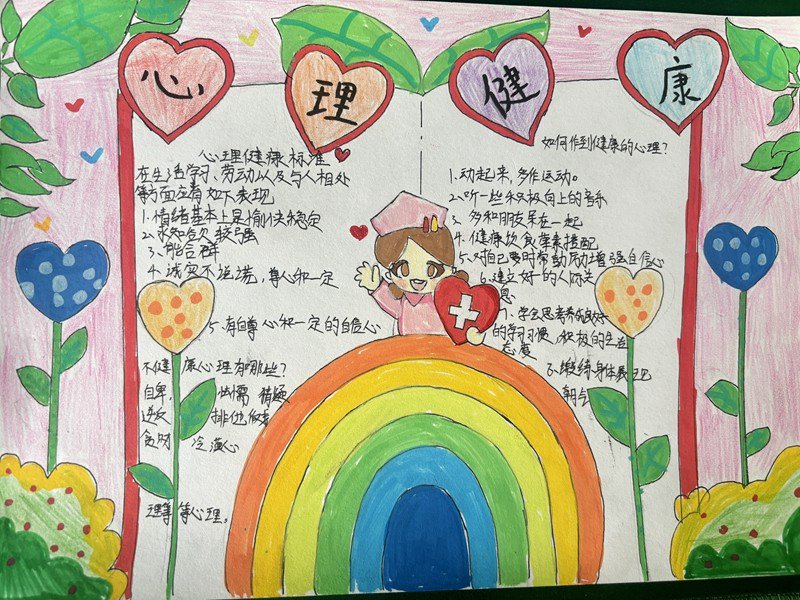 心理健康
心理健康标准
在生活学习、劳动以及与人相处
等方面应有如下表现
1.情绪基本上是愉快稳定
2.求知欲较强
3.能合群
4.诚实不说谎,尊心和一定
5.有自尊心和一定的自信心
不健康心理有哪些?
自卑, 怯懦 猜疑
逆反 排他
贪财 冷漠心
理等等心理。
如何作到健康的心理?
1.动起来,多作运动。
2.听一些积极向上的音乐
3.多和朋友在一起
4.健康饮食荤素搭配
5.对自己要时常鼓励增强自信心
6.建立好的人际关
7.学会思考养成良好
的学习习惯,积极的生活
态度
朝气